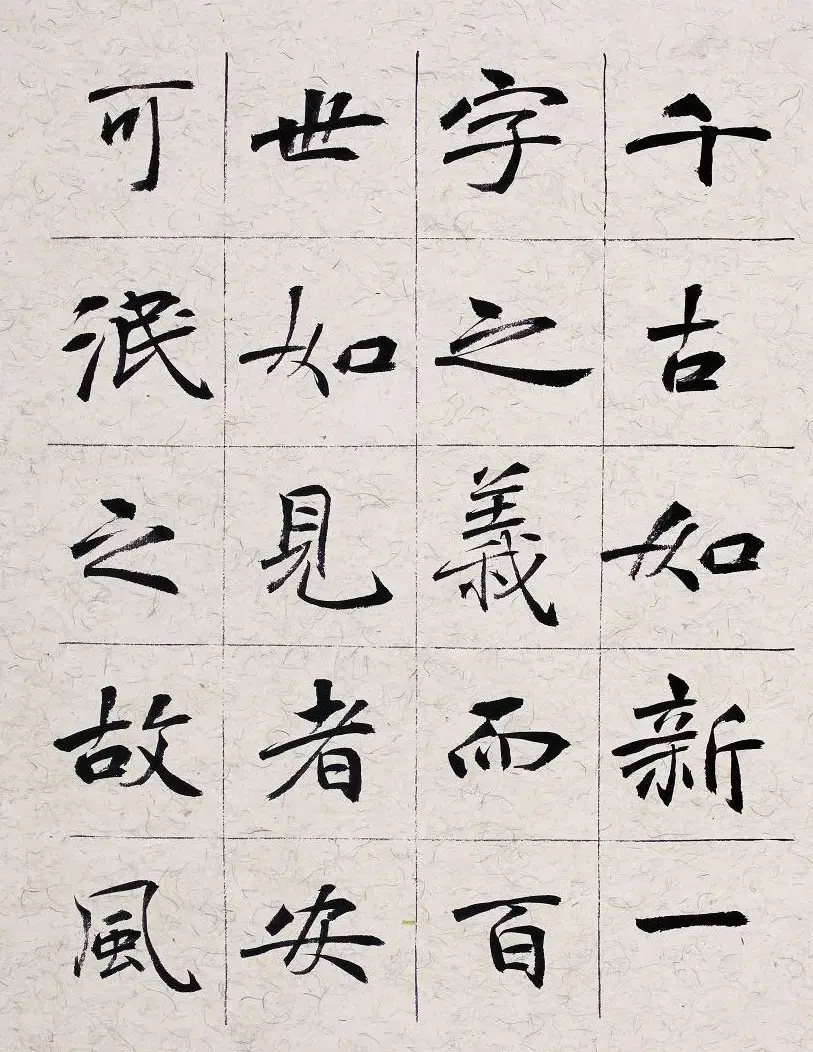 千古如新一
字之義而百
世如見者安
可泯之故風